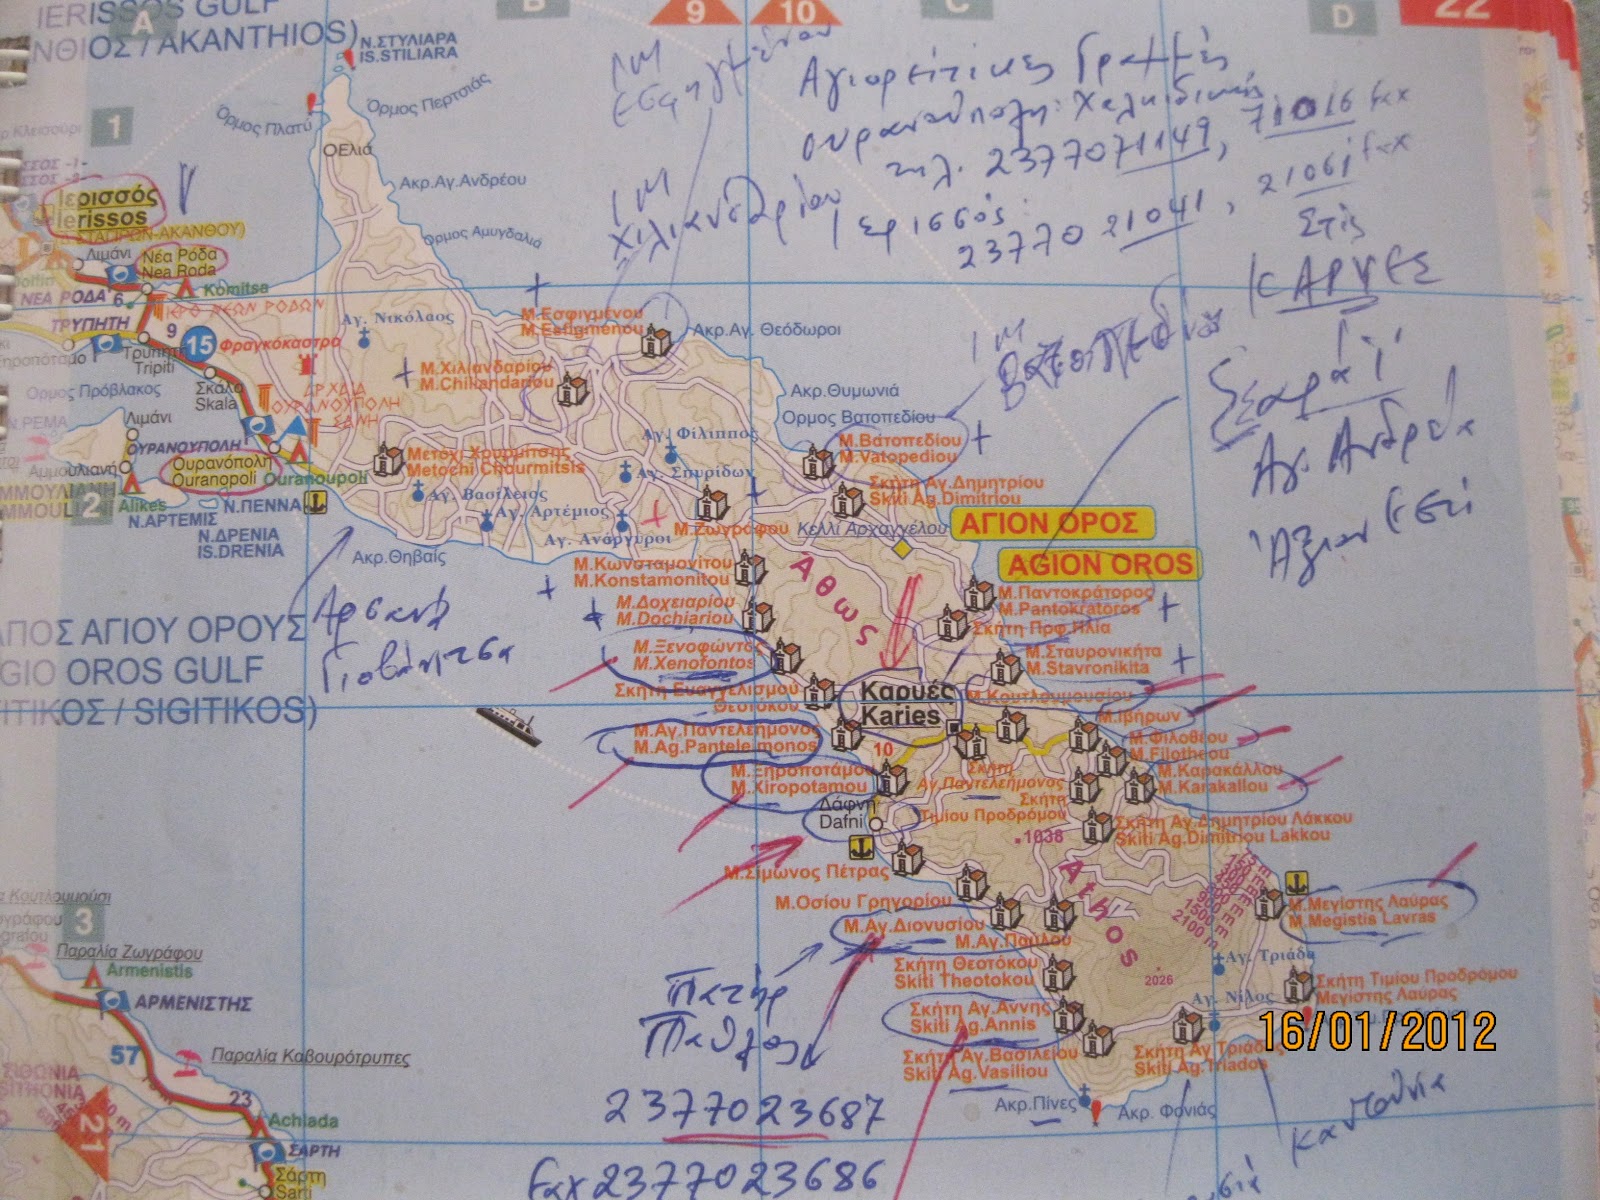 IERISSOS GULF
ΝΘΙΟΣ / AKANTHIOS)
A
B
C
D
9
10
22
Ν.ΣΤΥΛΙΑΡΑ
IS.STILIARA
Όρμος Περτσιάς
Όρμος Πλατύ
Ελιά
Ακρ.Αγ.Ανδρέου
Όρμος Αμυγδαλιά
1
Ιερισσός
Ierissos
Λιμάνι
Νέα Ρόδα
Nea Roda
Komitsa
ΝΕΑ ΡΟΔΑ
6
ΙΕΡΟ ΝΕΩΝ ΡΟΔΩΝ
ΤΡΥΠΗΤΗ
9
15
Φραγκόκαστρο
Τρυπητή
Tripiti
Σκάλα
Skala
Όρμος Πρόβλακος
Λιμάνι
ΟΥΡΑΝΟΥΠΟΛΗ
Ουρανόπολη
Ouranopoli
Ouranoupoli
2
Alikes
Ν.ΠΕΝΝΑ
Ν.ΑΡΤΕΜΙΣ
Ν.ΔΡΕΝΙΑ
IS.DRENIA
Ακρ.Θηβαΐς
Αγ. Νικόλαος
Μ.Εσφιγμένου
M.Esfigmenou
Ακρ.Αγ. Θεόδωροι
Μ.Χιλιανδαρίου
M.Chiliandariou
Ακρ.Θυμωνιά
Όρμος Βατοπεδίου
Μ.Βατοπεδίου
M.Vatopediou
Μετόχι Χουρμίτσης
Metochi Chourmitsis
Αγ. Φίλιππος
Αγ. Σπυρίδων
Αγ. Βασίλειος
Αγ. Αρτέμιος
Αγ. Ανάργυροι
Μ.Ζωγράφου
Σκήτη Αγ.Δημητρίου
Skiti Ag.Dimitriou
Κελλί Αρχαγγέλου
ΑΓΙΟΝ ΟΡΟΣ
AGION OROS
Μ.Κωνσταμονίτου
M.Konstamonitou
Μ.Δοχειαρίου
M.Dochiariou
Μ.Ξενοφώντος
M.Xenofontos
Σκήτη Ευαγγελισμού
Θεοτόκου
Άθως
Μ.Παντοκράτορος
M.Pantokratoros
Σκήτη Πρφ.Ηλία
Μ.Σταυρονικήτα
M.Stavronikita
Καρυές
Karies
Μ.Κουτλουμουσίου
Μ.Ιβήρων
Μ.Φιλοθέου
M.Filotheou
Μ.Καρακάλλου
M.Karakallou
ΑΓΙΟΥ ΟΡΟΥΣ
AGIO OROS GULF
SIGITIKOS)
Μ.Αγ.Παντελεήμονος
M.Ag.Panteleimonos
10
Μ.Ξηροποτάμου
M.Xiropotamou
Δάφνη
Dafni
Σκήτη
Αγ.Παντελεήμονος
Σκήτη
Τιμίου Προδρόμου
1038
Σκήτη Αγ.Δημητρίου Λάκκου
Skiti Ag.Dimitriou Lakkou
Μ.Σίμωνος Πέτρας
Μ.Οσίου Γρηγορίου
Μ.Αγ.Διονυσίου
Μ.Αγ.Παύλου
Athos
1500 m
2100 m
Μ.Μεγίστης Λαύρας
M.Megistis Lavras
Σκήτη Θεοτόκου
Skiti Theotokou
2026
Αγ. Τριάδα
Σκήτη Τιμίου Προδρόμου
Μεγίστης Λαύρας
Αγ. Νίλος
Σκήτη Αγ.Άννης
Skiti Ag.Annis
Σκήτη Αγ.Βασιλείου
Skiti Ag.Vasiliou
Σκήτη Αγ.Τριάδος
Skiti Ag.Triados
Ακρ.Πίνες
Ακρ. Φονιάς
3
Παραλία Ζωγράφου
Armenistis
ΑΡΜΕΝΙΣΤΗΣ
57
Παραλία Καβουρότρυπες
23
Achlada
ΣΑΡΤΗ
Σάρτη
Sarti
21
ΙΜ
Εσφιγμένου
ΙΜ
Χιλιανδαρίου
Αγιορείτικες Γραμμές
Ουρανούπολη: Χαλκιδικής
τηλ. 2377071149, 71016 fax
Ιερισσός:
23770 21041, 21061 fax
Στις
ΚΑΡΥΕΣ
ΙΜ
Βατοπεδίου
Σεράϊ
Αγ. Ανδρέα
Άξιον Εστί
Αρσανά
Γιοβάνιτσα
Πατήρ
Παύλος
2377023687
fax 2377023686
16/01/2012